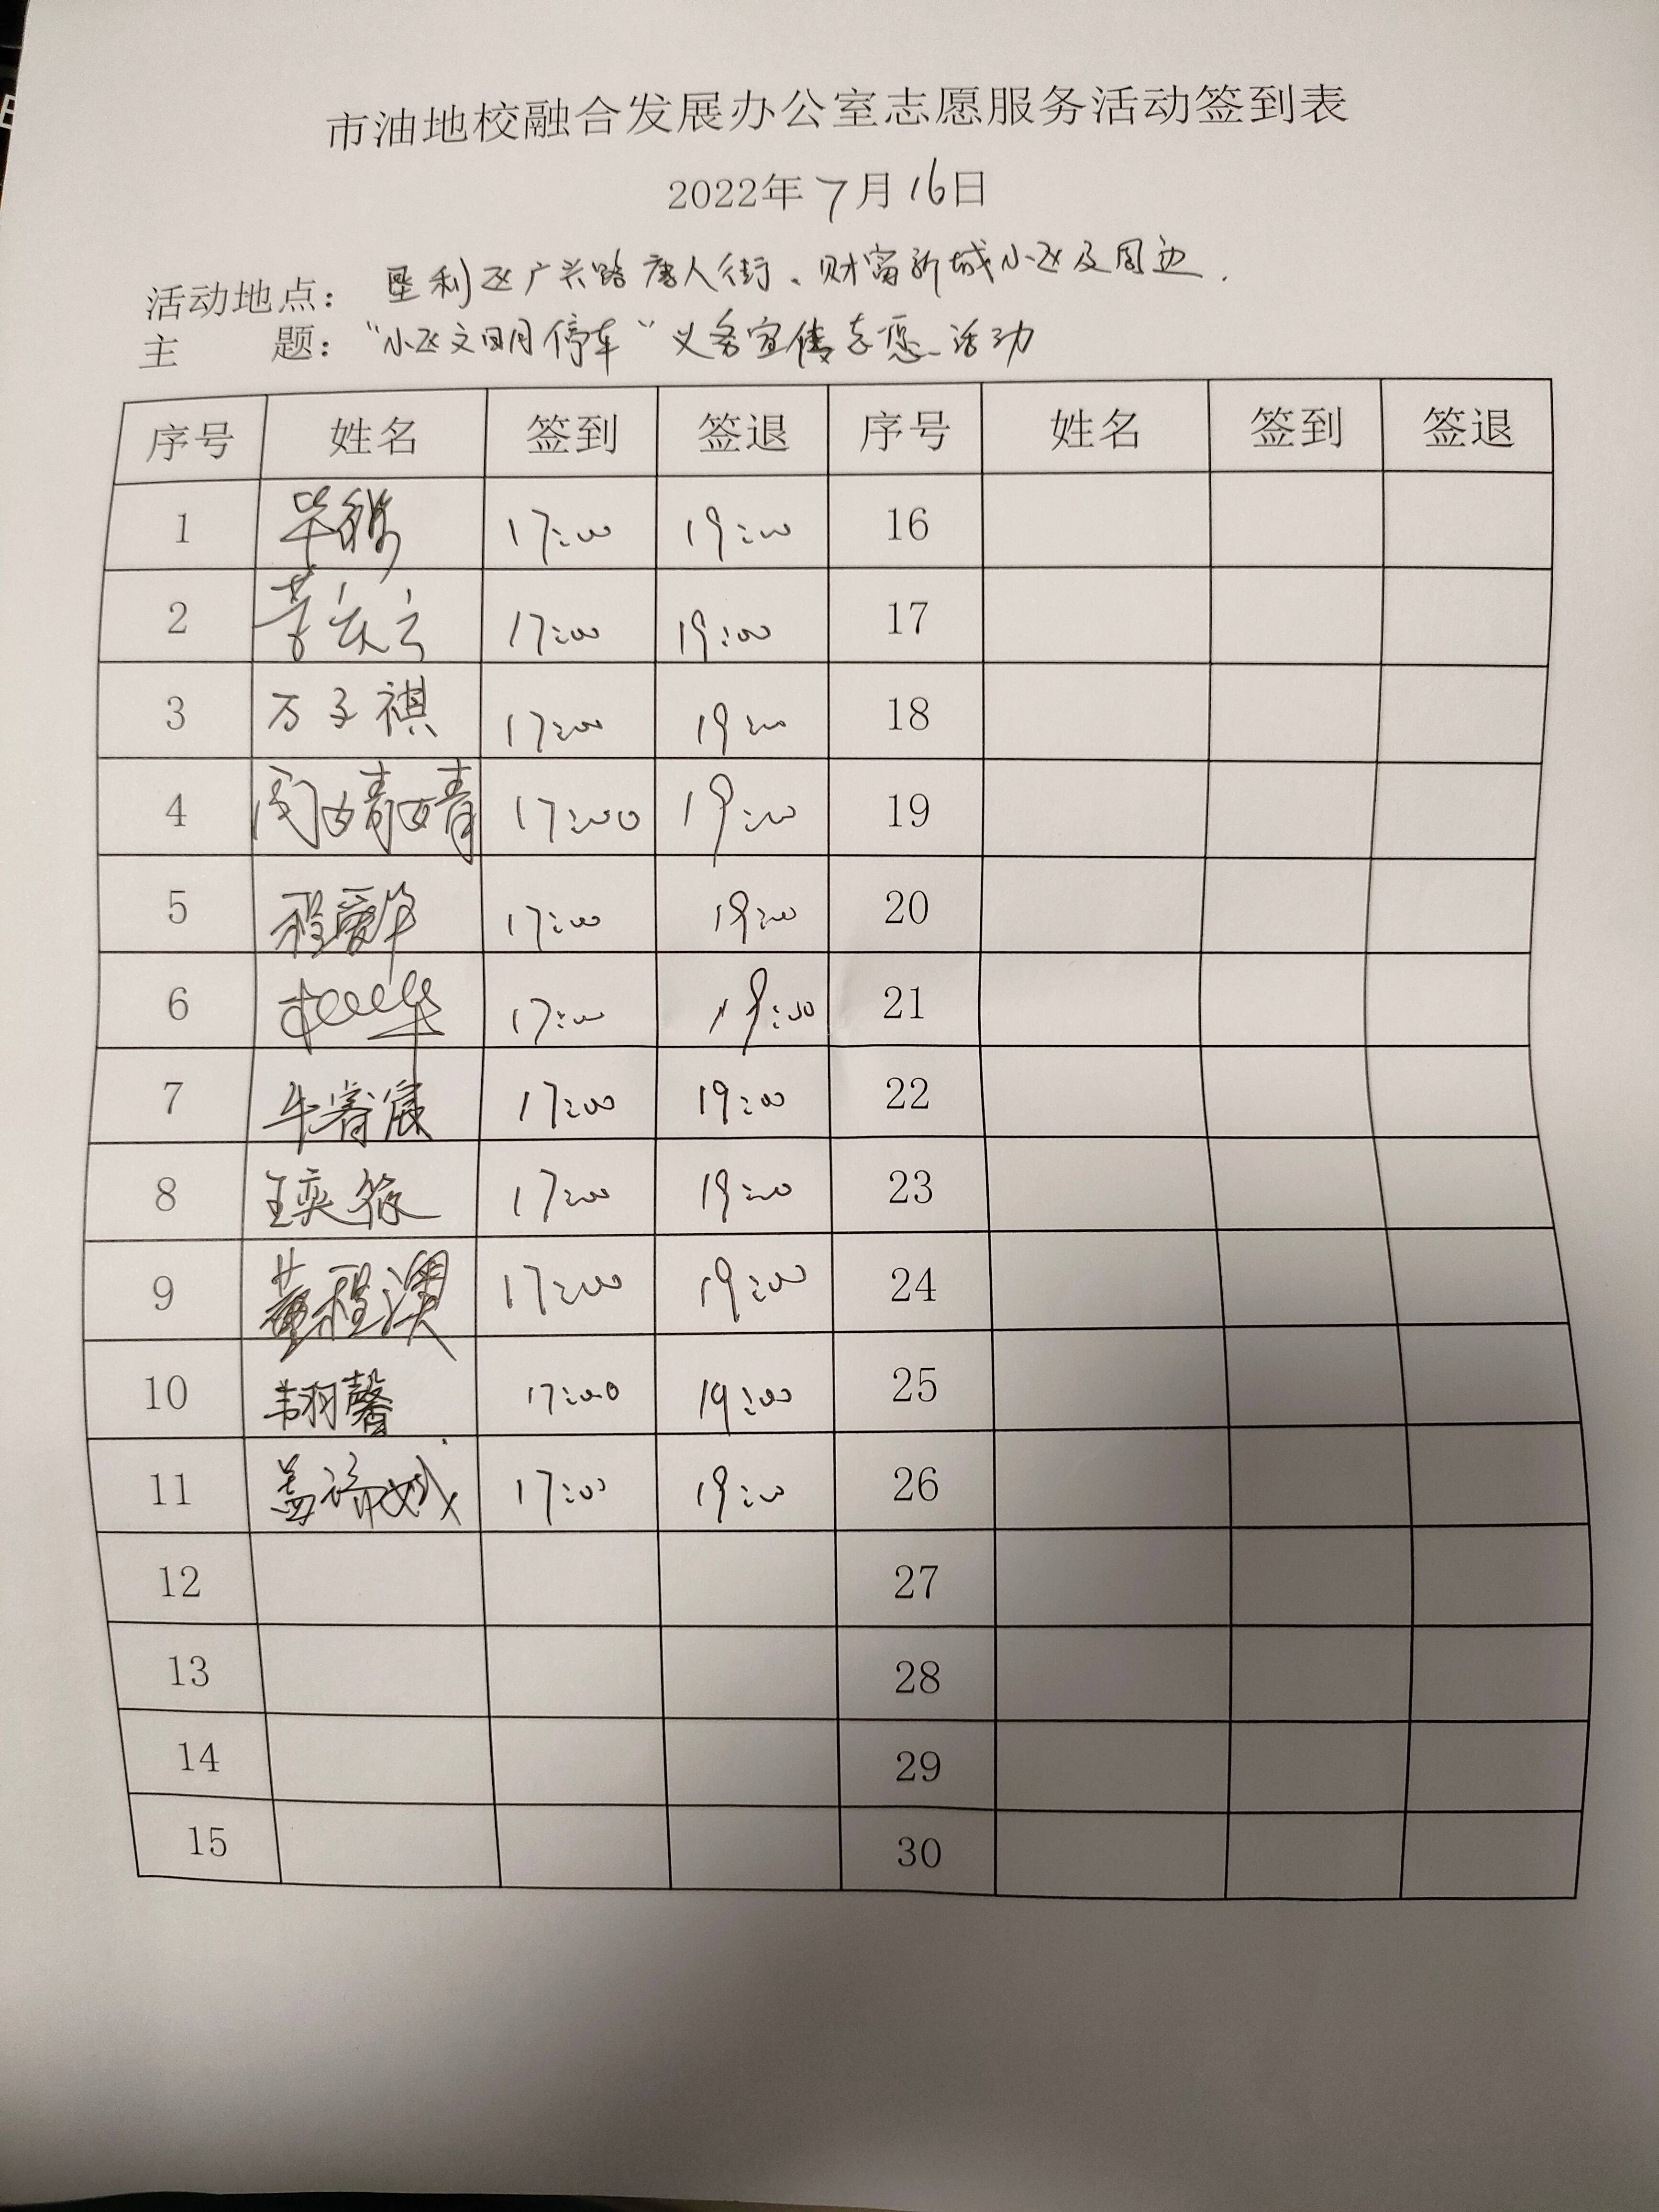 市油地校融合发展办公室志愿服务活动签到表
2022年7月16日
活动地点： 垦利区广兴路唐人街、财富新城小区及周边.
主 题： "小区文明停车"义务宣传志愿活动
序号 姓名 签到 签退 序号 姓名 签到 签退
1 17:00 19:00 16
2 17:00 19:00 17
3 万子祺 17:00 19:00 18
4 闫婧婧 17:00 19:00 19
5 程爱华 17:00 19:00 20
6 17:00 19:00 21
7 牛睿宸 17:00 19:00 22
8 王奕 17:00 19:00 23
9 董程澳 17:00 19:00 24
10 韦羽馨 17:00 19:00 25
11 盖 17:00 19:00 26
12 27
13 28
14 29
15 30